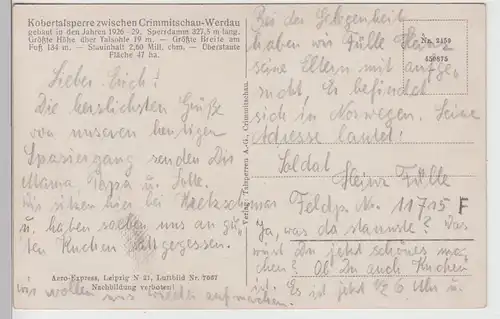 Kobertalsperre zwischen Crimmitschau-Werdau
gebaut in den Jahren 1926 - 29. Sperrdamm 327,5 m lang.
Größte Höhe über Talsohle 19 m. — Größte Breite am
Fuß 134 m. — Stauinhalt 2,60 Mill. cbm. — Überstaute
Fläche 47 ha.
Lieber Erich!
Die herzlichsten Grüße
von unserem heutigen
Spaziergang senden Dir
Mama, Papa u.
Wir sitzen hier bei
u. haben soeben uns an gu-
ten Kuchen satt gegessen.
Aero-Express, Leipzig N 21, Luftbild Nr. 7867
Nachbildung verboten!
Wir wollen uns wieder aufmachen.
Verlag: Talsperren A.-G., Crimmitschau.
Nr. 2159
458675
Bei der Gelegenheit
haben wir Fülle Heinz
seine Eltern mit aufge-
sucht. Er befindet
sich in Norwegen. Seine
Adresse lautet:
Soldat
Heinz Fülle
Feldp. Nr. 11715 F
Ja, was da staunste? Was
wirst Du jetzt schönes ma-
chen? Ob Du auch Kuchen
ißt? Es ist jetzt 1/2 6 Uhr u.